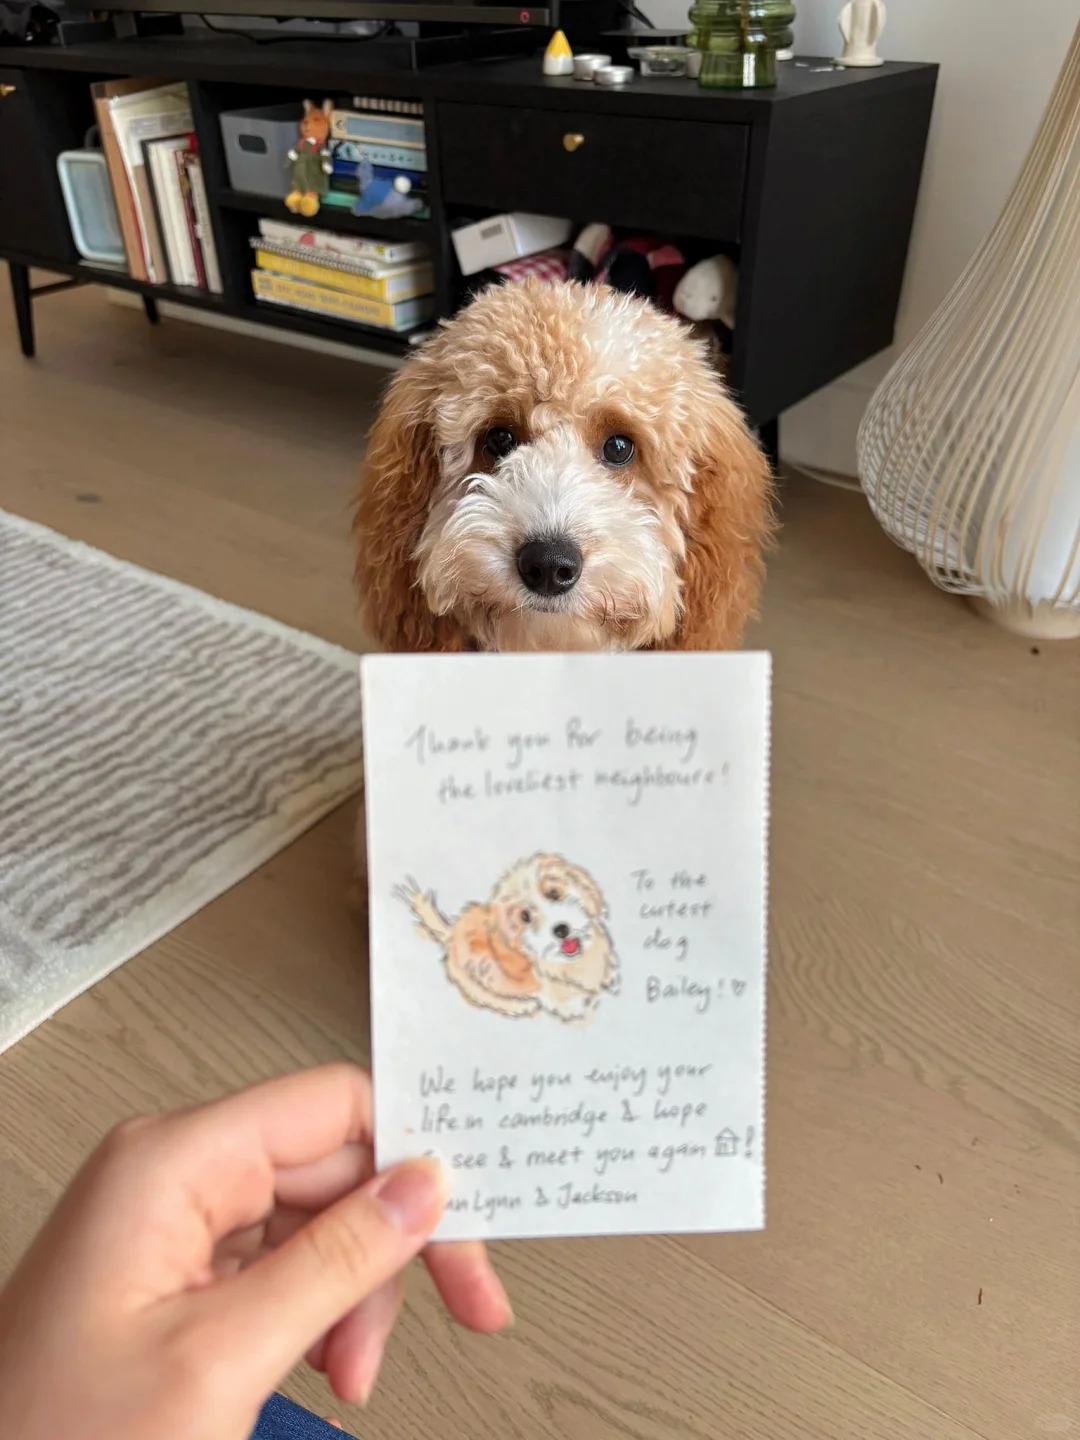 Thank you for being
the loveliest neighbours!
To the
cutest
dog
Bailey!
We hope you enjoy your
life in cambridge & hope
see & meet you again !
Lynn & Jackson